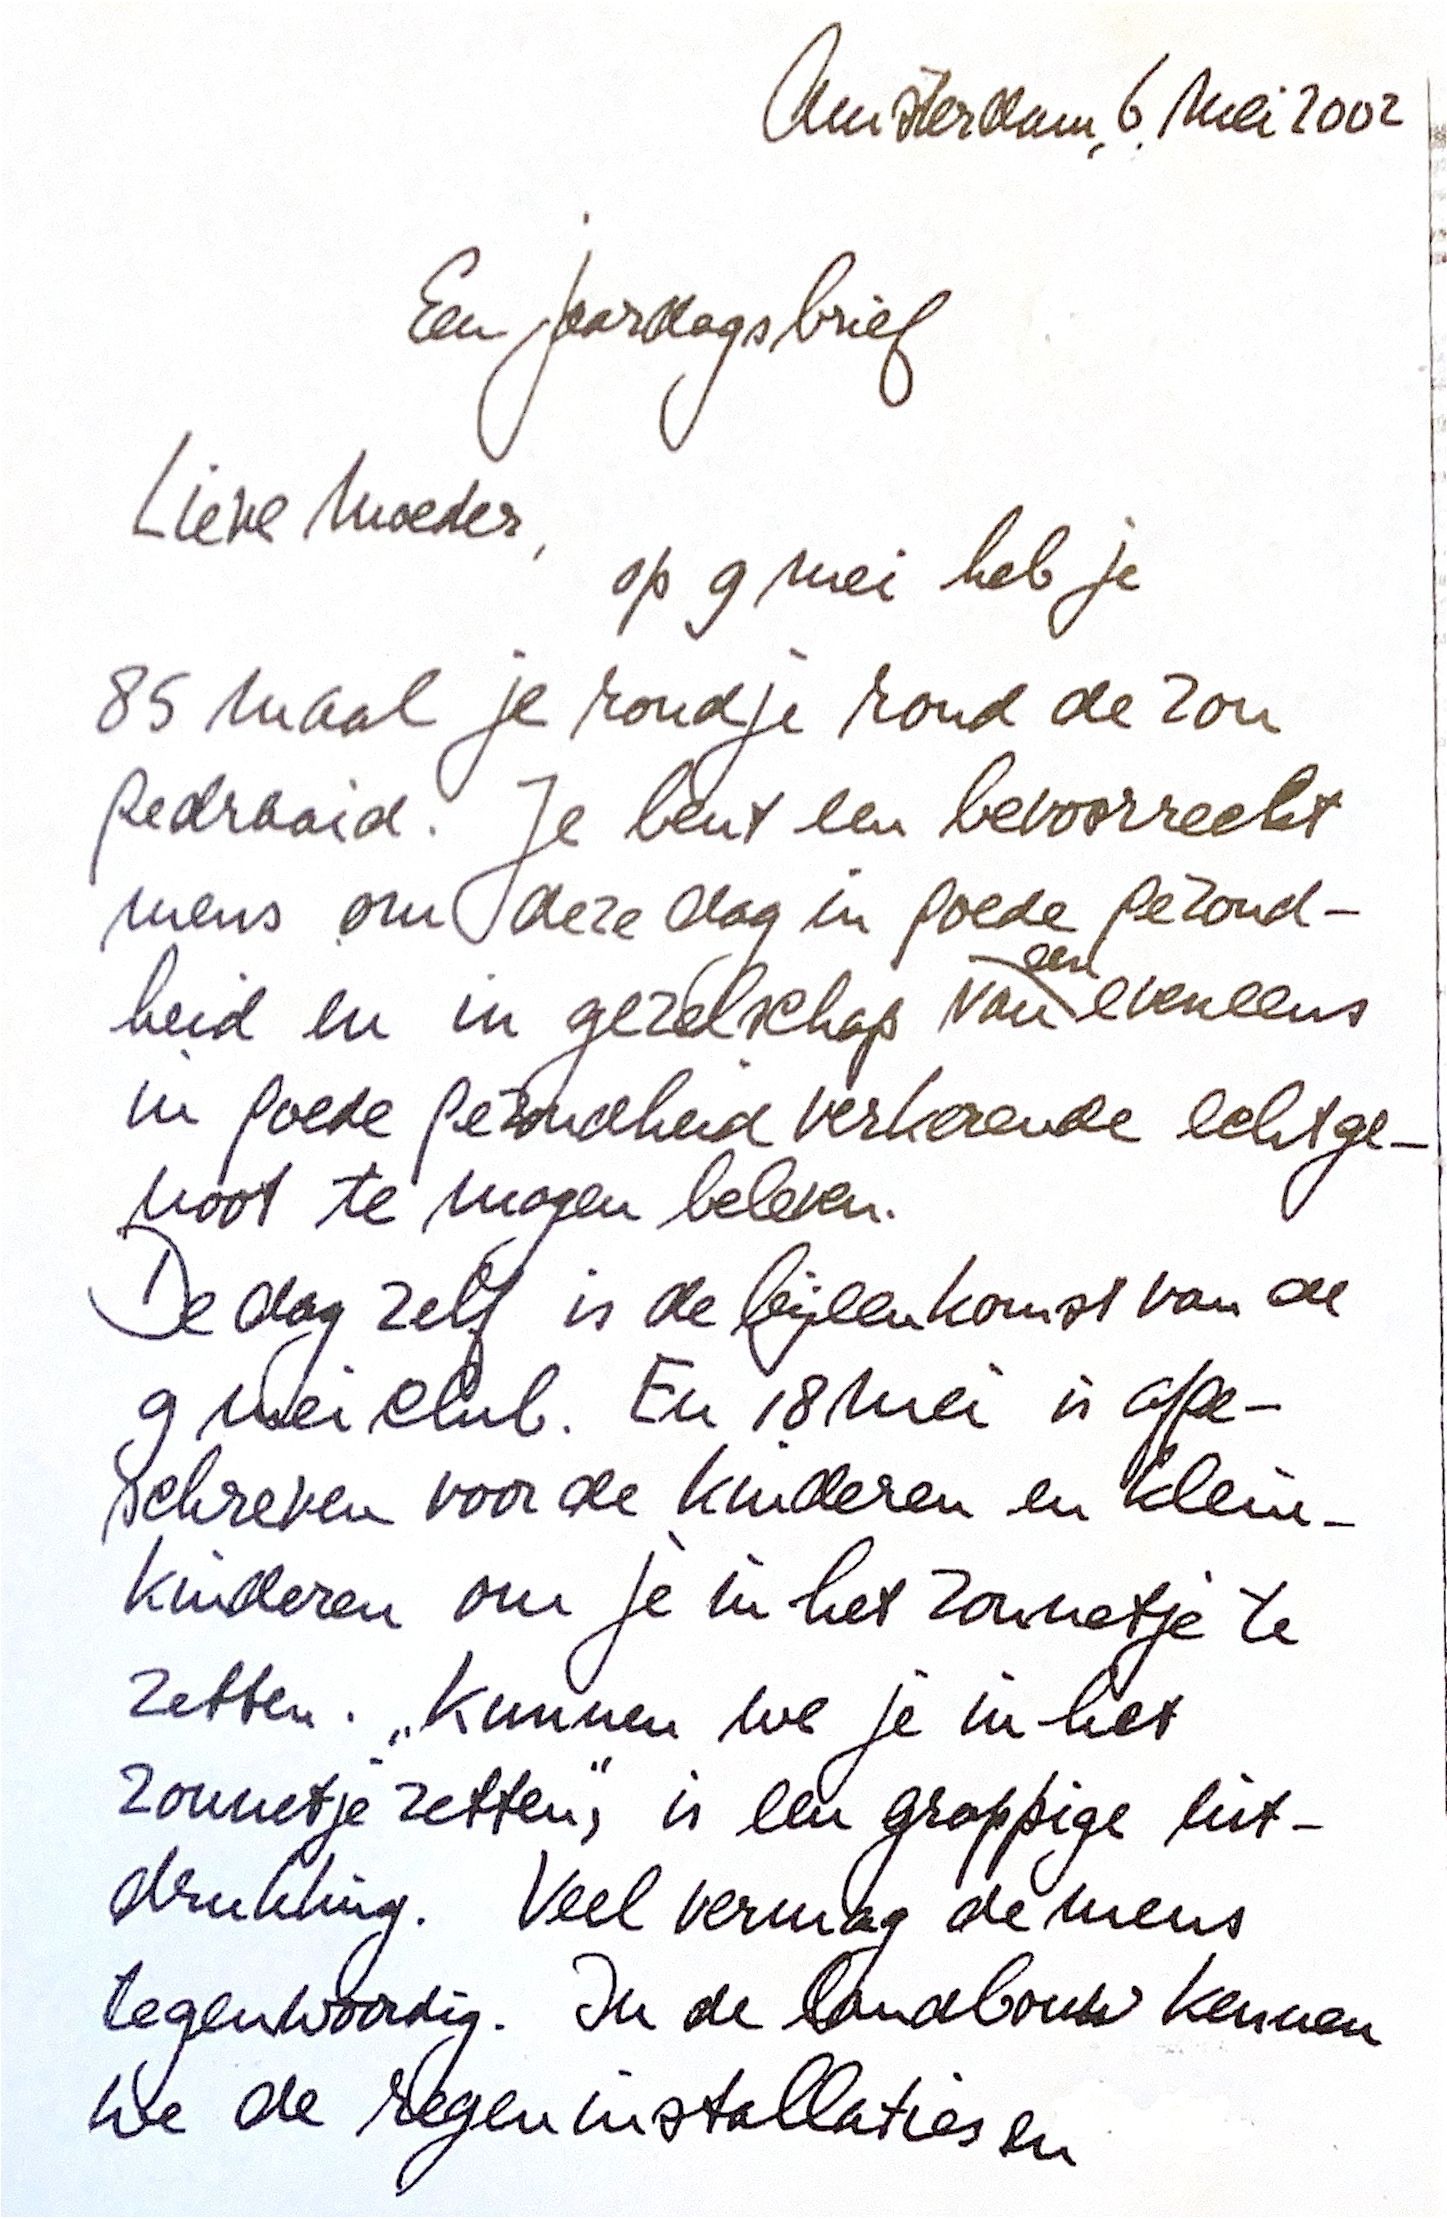 Amsterdam, 6 Mei 2002
Een jaardagsbrief
Lieve Moeder,
op 9 Mei heb je
85 maal je rondje rond de zon
gedraaid. Je bent een bevoorrecht
mens om deze dag in goede gezond-
heid en in gezelschap van een eveneens
in goede gezondheid verkerende echtge-
noot te mogen beleven.
De dag zelf is de bijeenkomst van de
9 Mei club. En 18 Mei is afge-
schreven voor de kinderen en klein-
kinderen om je in het zonnetje te
zetten. „Kunnen we je in het
zonnetje zetten", is een grappige uit-
drukking. Veel vermag de mens
tegenwoordig. In de landbouw kennen
we de regeninstallaties en